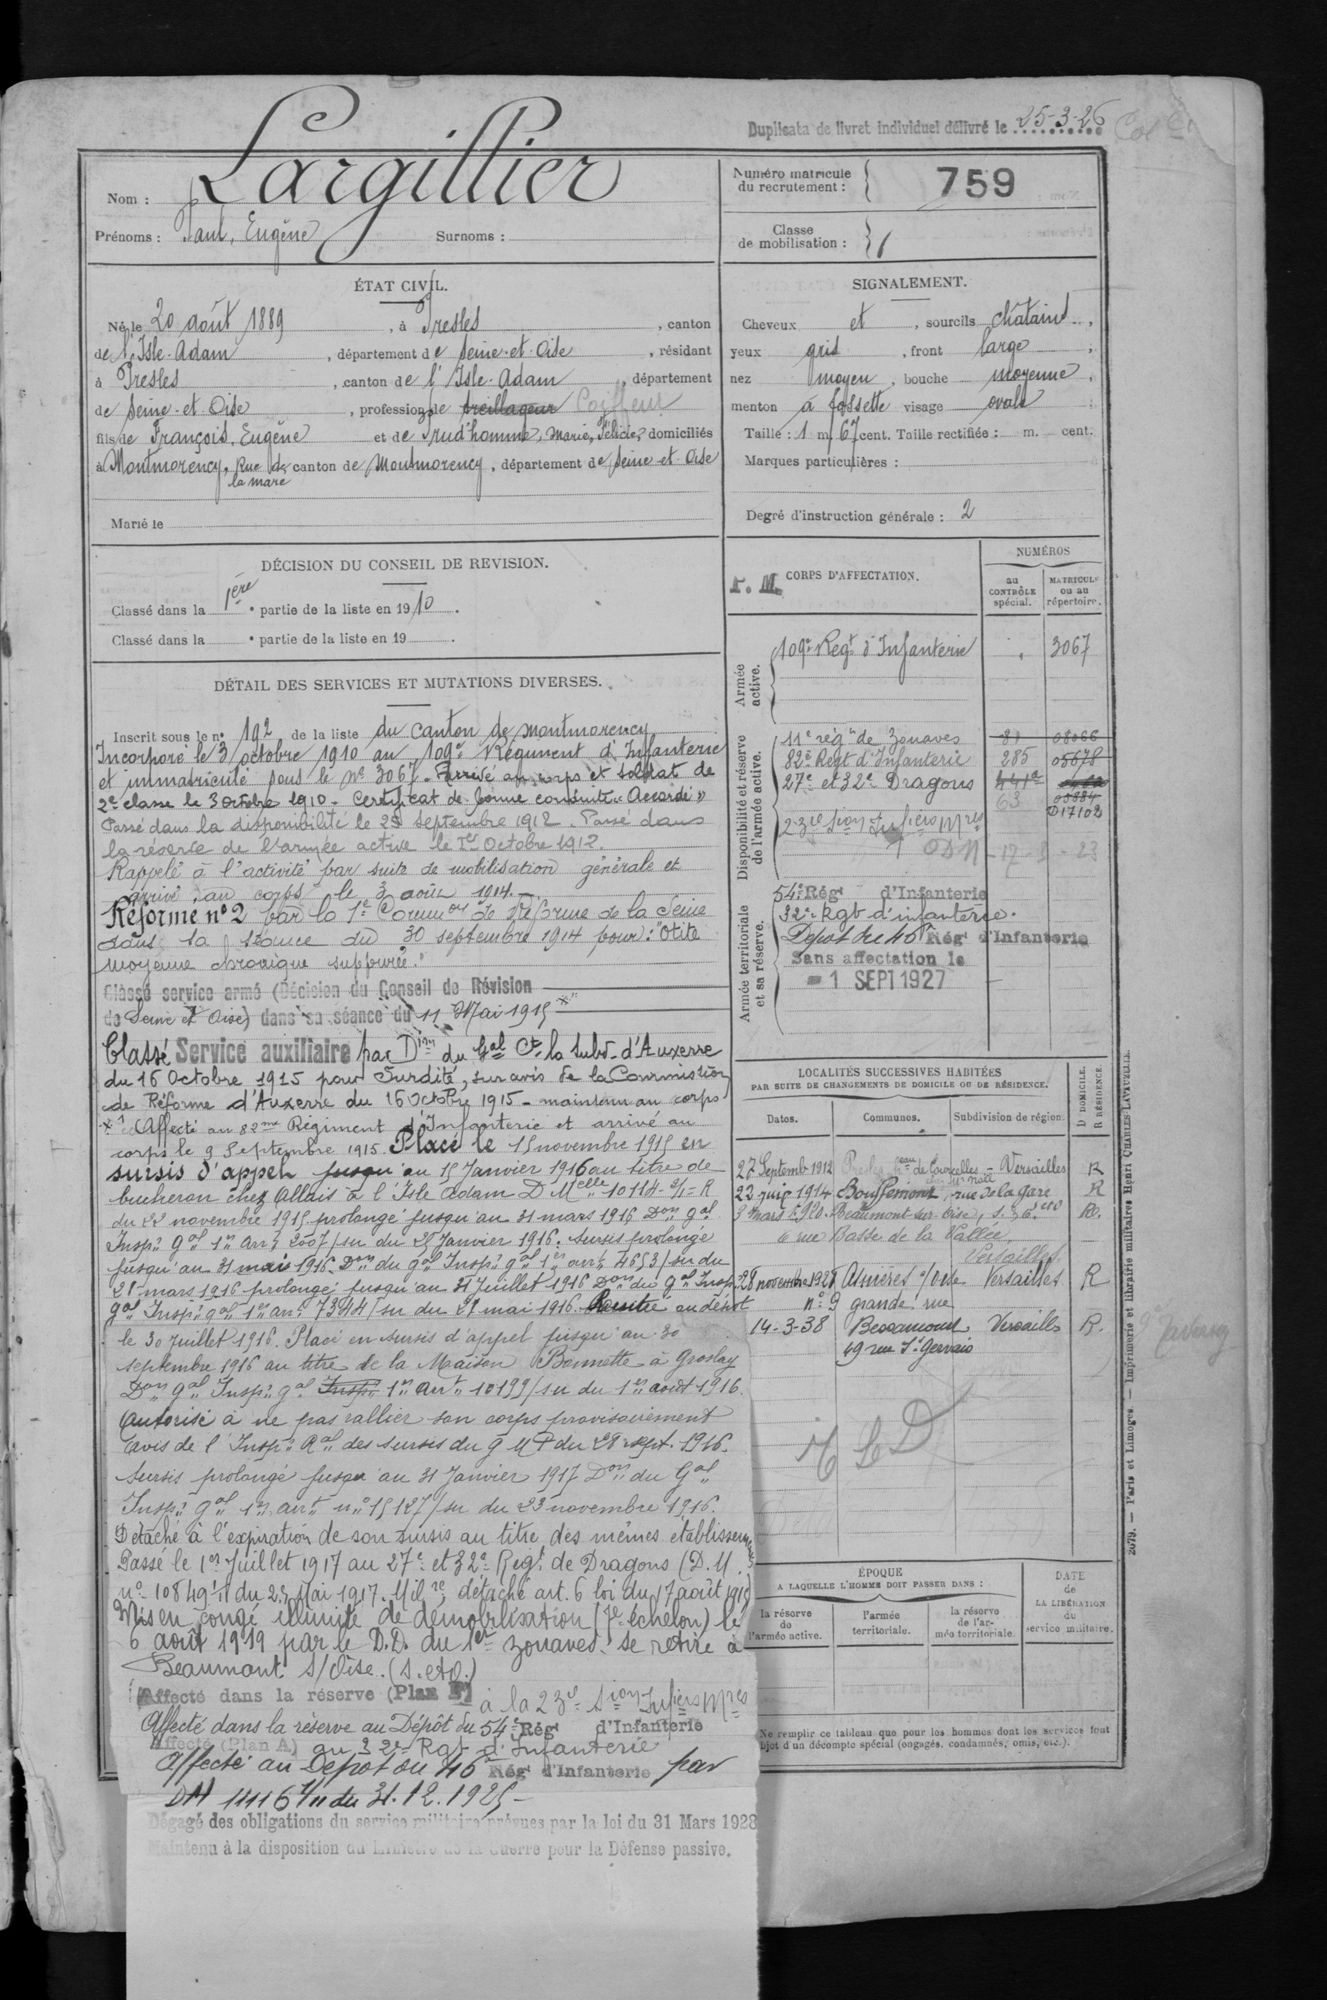 Duplicata de livret individuel délivré le 25-3-26
Nom : Largillier
Prénoms : Paul, Eugène Surnoms :
Numéro matricule du recrutement : 759
Classe de mobilisation :
ÉTAT CIVIL.
Né le 20 août 1889, à Presles, canton
de l'Isle-Adam, département de Seine-et-Oise, résidant
à Presles, canton de l'Isle-Adam, département
de Seine-et-Oise, profession de treillageur Coiffeur
fils de François, Eugène et de Prud'homme, Marie, Félicie, domiciliés
à Montmorency, Rue de la mare canton de Montmorency, département de Seine-et-Oise
Marié le
SIGNALEMENT.
Cheveux et, sourcils châtains,
yeux gris, front large,
nez moyen, bouche moyenne,
menton à fossette visage ovale
Taille : 1 m. 67 cent. Taille rectifiée : m. cent.
Marques particulières :
Degré d'instruction générale : 2
DÉCISION DU CONSEIL DE REVISION.
Classé dans la 1ère partie de la liste en 1910.
Classé dans la e partie de la liste en 19 .
DÉTAIL DES SERVICES ET MUTATIONS DIVERSES.
Inscrit sous le n° 192 de la liste du canton de Montmorency
Incorporé le 3 octobre 1910 au 109e Régiment d'Infanterie
et immatriculé sous le N° 3067. Arrivé au corps et soldat de
2e classe le 3 octobre 1910. Certificat de bonne conduite "Accordé"
Passé dans la disponibilité le 25 septembre 1912. Passé dans
la réserve de l'armée active le 1er Octobre 1912.
Rappelé à l'activité par suite de mobilisation générale et
arrivé au corps le 3 août 1914.
Réformé n° 2 par la 1e Common de Réforme de la Seine
dans la séance du 30 septembre 1914 pour : "Otite
moyenne chronique suppurée."
Classé service armé (Décision du Conseil de Révision
de Seine et Oise) dans sa séance du 11 Mai 1915 *
Classé Service auxiliaire par Don du Gal Ct la Subd. d'Auxerre
du 16 Octobre 1915 pour Surdité, sur avis de la Commission
de Réforme d'Auxerre du 16 Octobre 1915 - maintenu au corps
* Affecté au 82me Régiment d'Infanterie et arrivé au
corps le 9 Septembre 1915 Placé le 15 novembre 1915 en
sursis d'appel jusqu'au 15 Janvier 1916 au titre de
bucheron chez Allais à l'Isle Adam D Mlle 10114-2/1-R
du 22 novembre 1915 prolongé jusqu'au 31 mars 1916 Don gal
Inspr gal 1er Arrt 2007/su du 25 Janvier 1916. Sursis prolongé
jusqu'au 31 mai 1916. Don du gal Inspr gal 1er arrt 4653/su du
28 mars 1916 prolongé jusqu'au 31 Juillet 1916 Don du gal Inspr
gal Inspr gal 1er arrt 7344/su du 28 mai 1916. au dépôt
le 30 juillet 1916. Placé en sursis d'appel jusqu'au 30
septembre 1916 au titre de la Maison Bonnette à Groslay
Don gal Inspr gal Inspr 1er Arrt 10199/su du 1er août 1916.
Autorisé à ne pas rallier son corps provisoirement
avis de l'Inspr Ral des sursis du G M P du 28 sept. 1916.
Sursis prolongé jusqu'au 31 Janvier 1917 Don du Gal
Inspr gal 1er arrt n° 15127/su du 23 novembre 1916.
Détaché à l'expiration de son sursis au titre des mêmes établissements
Passé le 1er Juillet 1917 au 27e et 32e Régt de Dragons (D.M.
n° 10849 du 23 Mai 1917. Milre détaché art. 6 loi du 17 août 1915)
Mis en congé illimité de démobilisation (7e échelon) le
6 août 1919 par le D.D. du 1er zouaves. se retire à
Beaumont s/Oise. (S.etO.)
Affecté dans la réserve (Plan ) à la 23e Sion Infiers Mres
Affecté dans la réserve au Dépôt du 54e Régt d'Infanterie
Affecté (Plan A) au 32e Rgt d'Infanterie
Affecté au Dépôt du 46e Régt d'Infanterie par
DM du 31.12.1925 -
Dégagé des obligations du service militaire prévues par la loi du 31 Mars 1928
Maintenu à la disposition du Ministre de la Guerre pour la Défense passive.
P. M. CORPS D'AFFECTATION.
NUMÉROS
au CONTRÔLE spécial.
MATRICULE ou au répertoire.
Armée active.
109e Regt d'Infanterie 3067
Disponibilité et réserve de l'armée active.
11e régt de Zouaves
82e Regt d'Infanterie 285 05678
27e et 32e Dragons
63 05884
D17102
23e Sion Infiers Mres
Armée territoriale et sa réserve.
54e Régt d'Infanterie
32e Rgt d'infanterie.
Depot du 46e Régt d'Infanterie
Sans affectation le
- 1 SEPT 1927
LOCALITÉS SUCCESSIVES HABITÉES
PAR SUITE DE CHANGEMENTS DE DOMICILE OU DE RÉSIDENCE.
Dates. Communes. Subdivision de région.
D DOMICILE. R RÉSIDENCE.
27 Septemb 1912 Presles, heau de Courcelles - Versailles R
22 juin 1914 Bouffemont, rue de la gare R
9 mars 1920. Beaumont sur Oise, S. & O.
6 rue Basse de la Vallée. Versailles
28 novembre 1928 Asnières s/oise Versailles R
n° 9 grande rue
14-3-38 Bessancourt Versailles R.
49 rue St Gervais
ÉPOQUE
A LAQUELLE L'HOMME DOIT PASSER DANS :
la réserve de l'armée active.
l'armée territoriale.
la réserve de l'armée territoriale.
DATE de LA LIBÉRATION du service militaire.
Ne remplir ce tableau que pour les hommes dont les services font
objet d'un décompte spécial (engagés, condamnés, omis, etc.).
2079. — Paris et Limoges. — Imprimerie et librairie militaires Henri CHARLES-LAVAUZELLE.